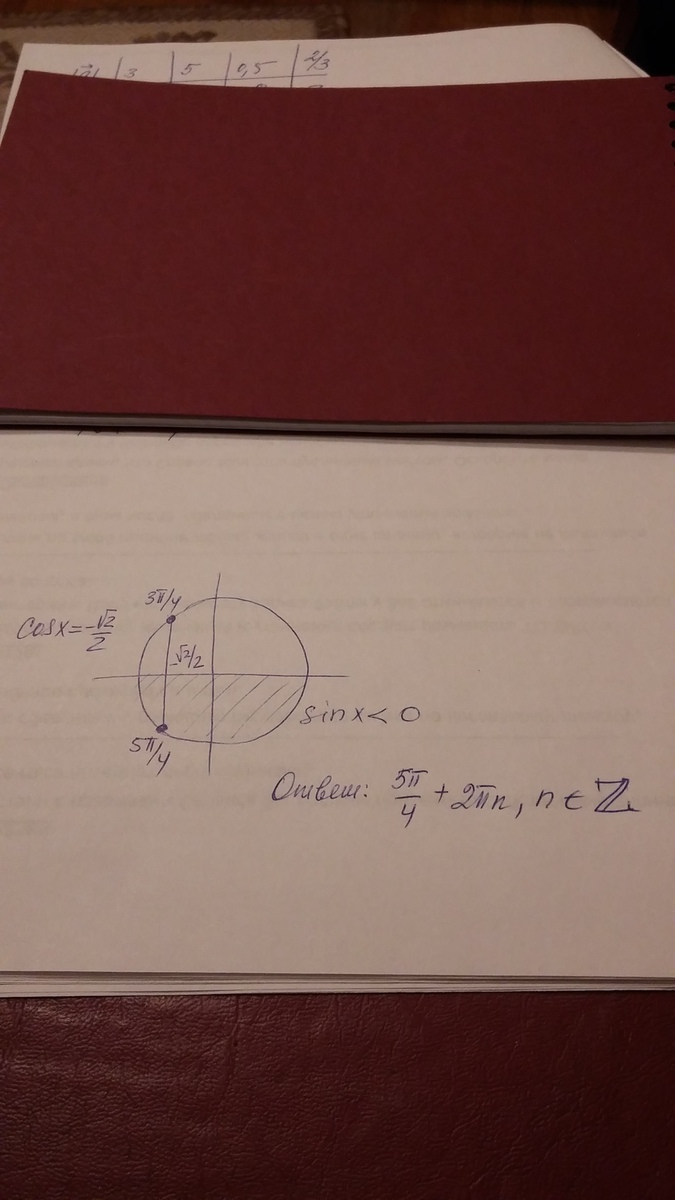 3 | 5 | 0,5 | 2/3
cosx = -√2/2
3π/4
-√2/2
5π/4
sinx < 0
Ответ: 5π/4 + 2πn, n ∈ ℤ